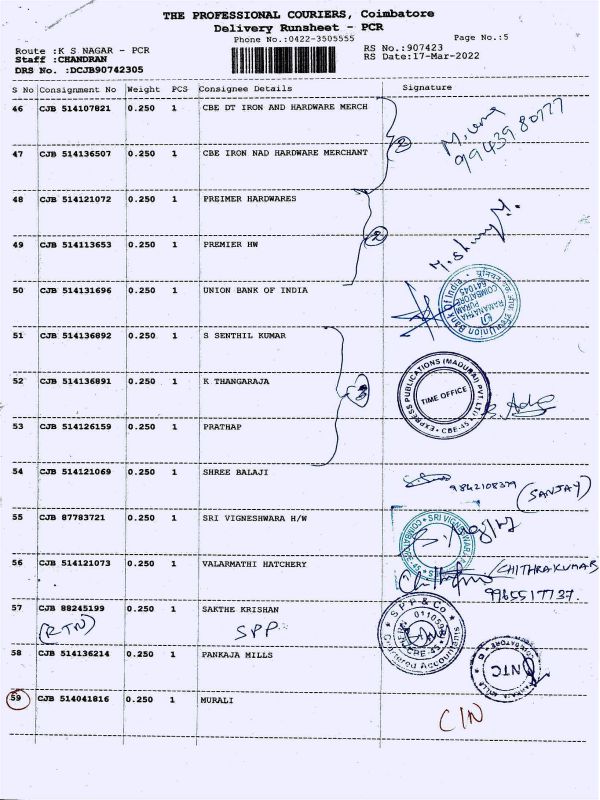 THE PROFESSIONAL COURIERS, Coimbatore
Delivery Runsheet - PCR
Phone No.:0422-3505555
Page No.:5
Route :K S NAGAR - PCR
RS No.:907423
Staff :CHANDRAN
RS Date:17-Mar-2022
DRS No. :DCJB90742305
S No Consignment No Weight PCS Consignee Details Signature
46 CJB 514107821 0.250 1 CBE DT IRON AND HARDWARE MERCH
2
47 CJB 514136507 0.250 1 CBE IRON NAD HARDWARE MERCHANT
48 CJB 514121072 0.250 1 PREIMER HARDWARES
2
49 CJB 514113653 0.250 1 PREMIER HW
50 CJB 514131696 0.250 1 UNION BANK OF INDIA
Union Bank Of India
RAMANATHA
PURAM
COIMBATORE
641045
51 CJB 514136892 0.250 1 S SENTHIL KUMAR
52 CJB 514136891 0.250 1 K THANGARAJA
3
EXPRESS PUBLICATIONS (MADURAI) PVT. LTD
TIME OFFICE
CBE-45
53 CJB 514126159 0.250 1 PRATHAP
54 CJB 514121069 0.250 1 SHREE BALAJI
9842108379 (SANJAY)
55 CJB 87783721 0.250 1 SRI VIGNESHWARA H/W
SRI VIGNESWARA
56 CJB 514121073 0.250 1 VALARMATHI HATCHERY
CHITHRAKUMAR
9965517737.
57 CJB 88245199 0.250 1 SAKTHE KRISHAN
(RTN) SPP
S P P & Co
Chartered Accountants
58 CJB 514136214 0.250 1 PANKAJA MILLS
NTC
59 CJB 514041816 0.250 1 MURALI
C/N